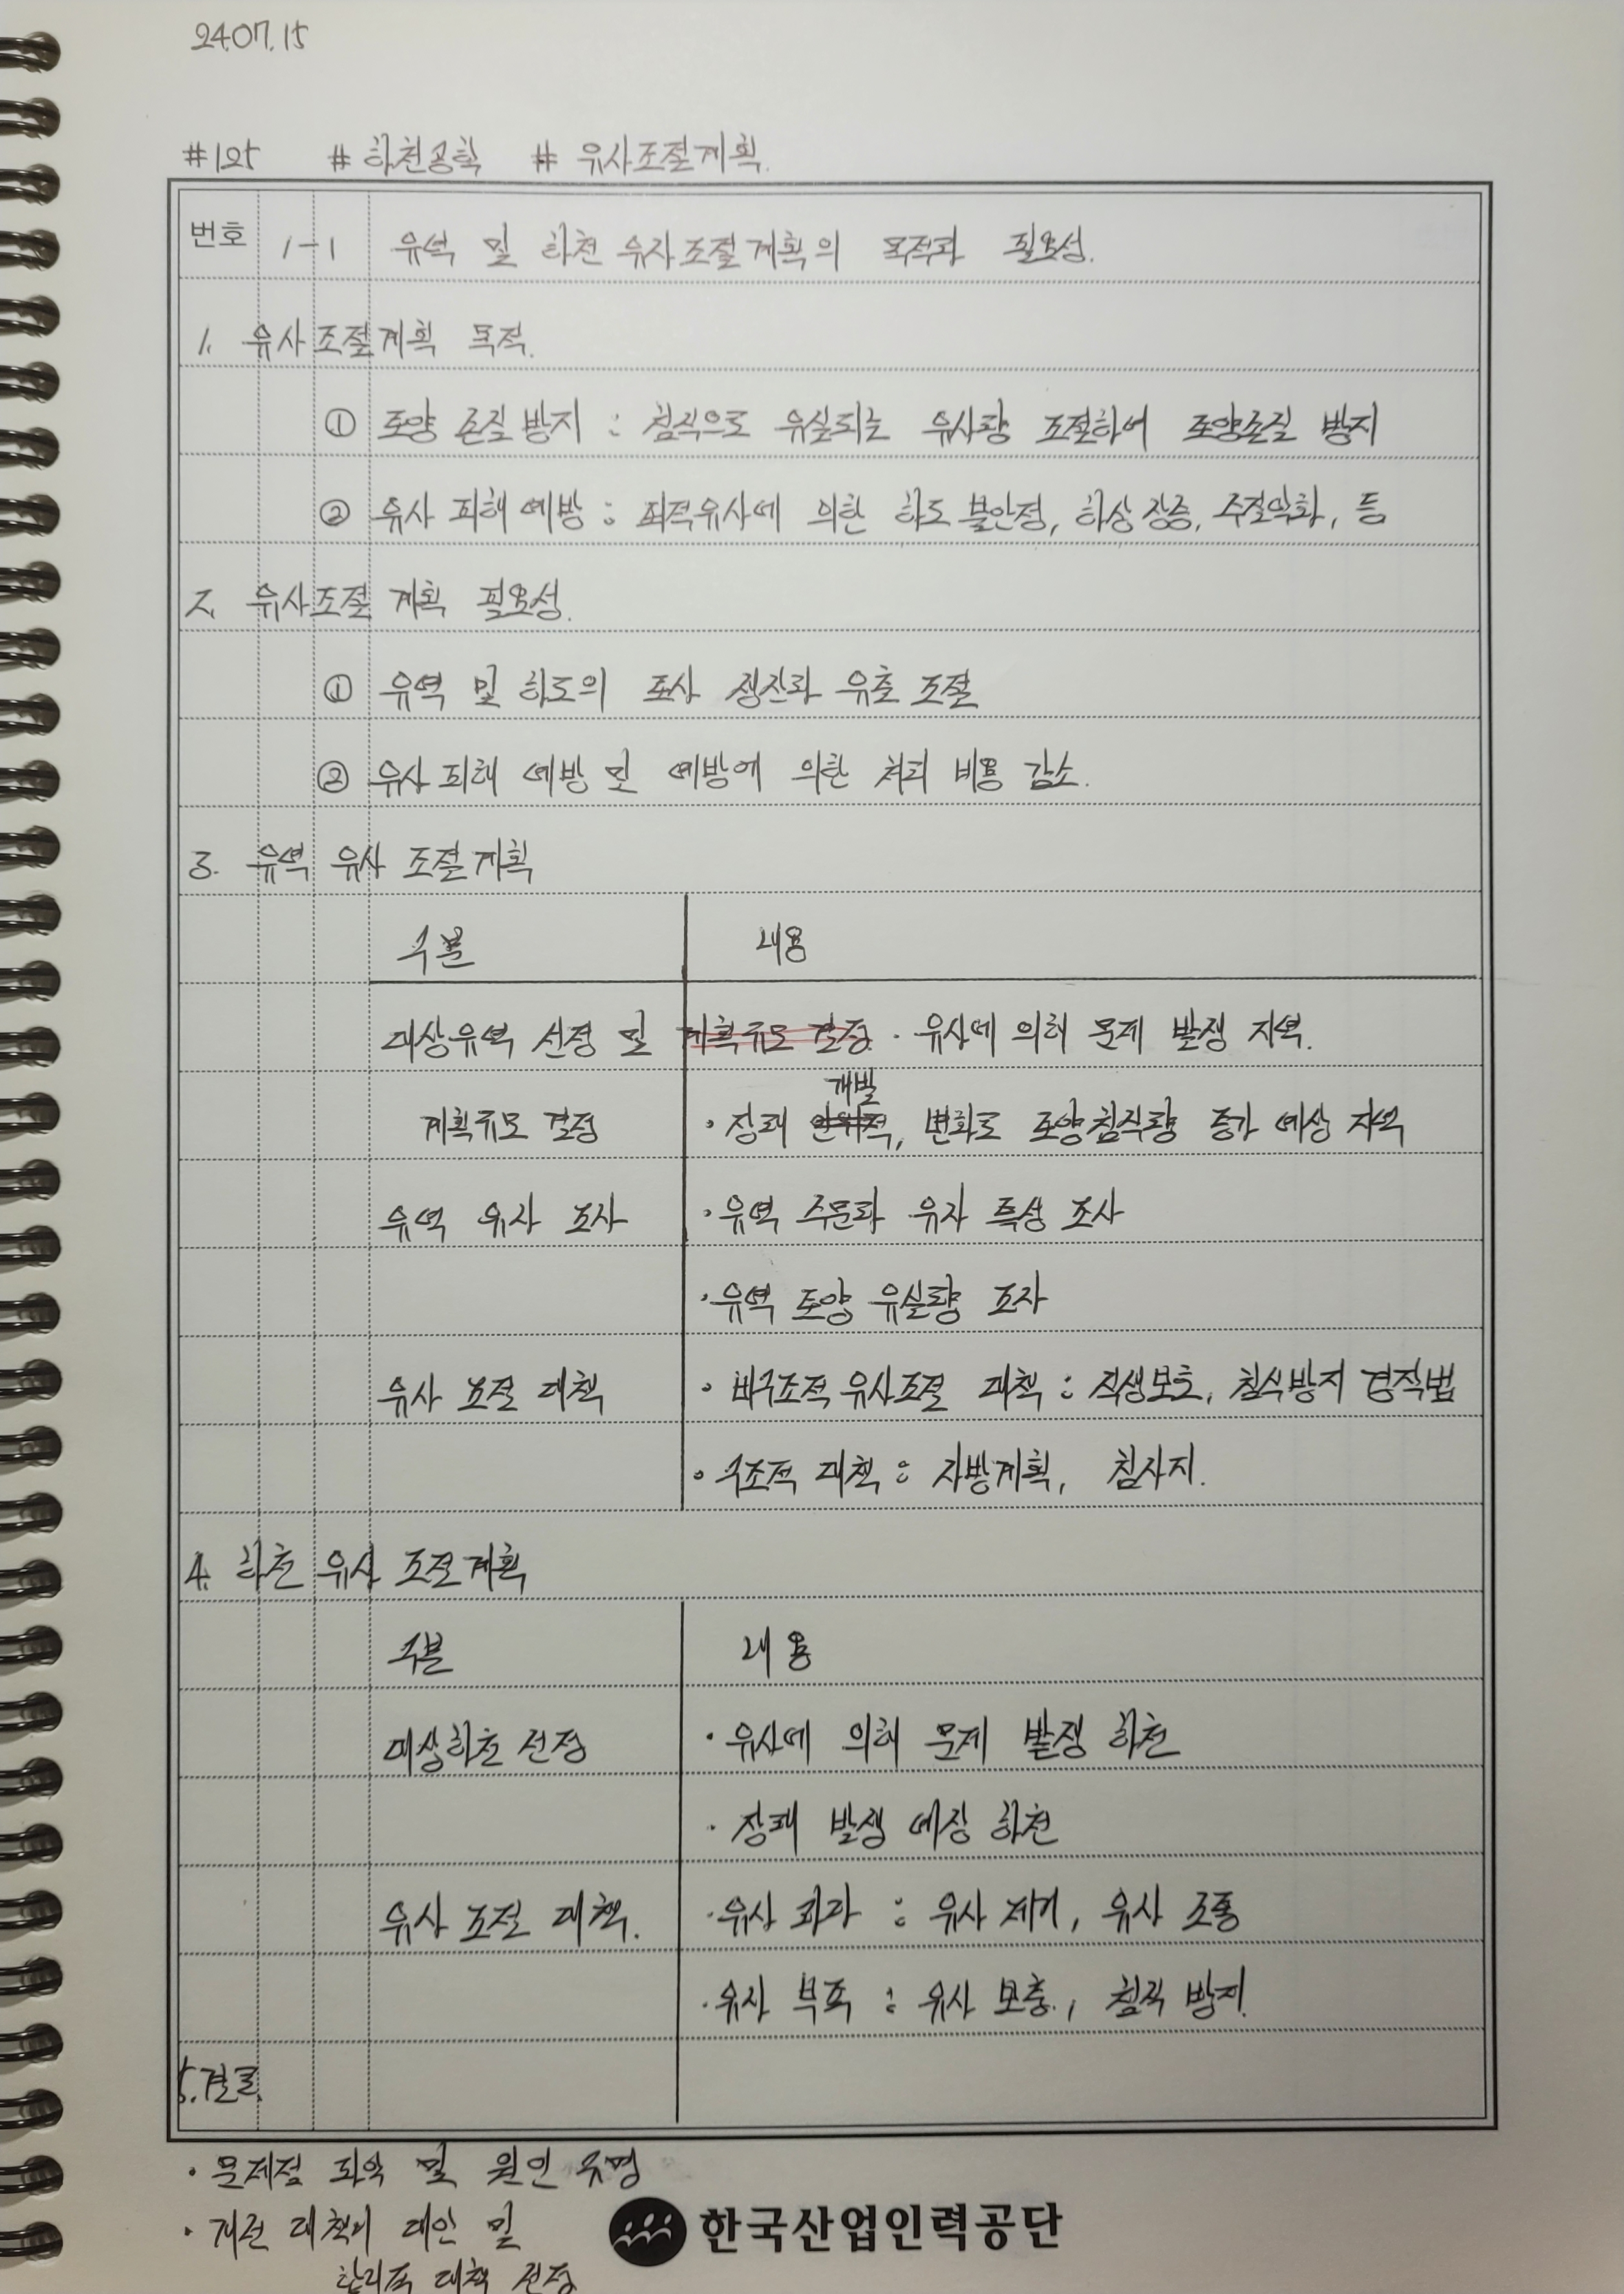 24.07.15
#125 #하천공학 # 유사조절계획.
번호 1-1 유역 및 하천 유사조절계획의 목적과 필요성.
1. 유사조절계획 목적.
① 토양 손실 방지 : 침식으로 유실되는 유사량 조절하여 토양손실 방지
② 유사 피해 예방 : 퇴적유사에 의한 하도 불안정, 하상 상승, 수질악화, 등
2. 유사조절 계획 필요성.
① 유역 및 하도의 토사 생산과 유출 조절
② 유사 피해 예방 및 예방에 의한 처리 비용 감소.
3. 유역 유사 조절계획
구분 내용
대상유역 선정 및 계획규모 결정. · 유사에 의해 문제 발생 지역.
개발
계획규모 결정 · 장래 변화로 토양침식량 증가 예상 지역
유역 유사 조사 · 유역 수문과 유사 특성 조사
· 유역 토양 유실량 조사
유사 조절 대책 · 비구조적 유사조절 대책 : 식생보호, 침식방지 경작법
· 구조적 대책 : 사방계획, 침사지.
4. 하천 유사 조절계획
구분 내용
대상하천 선정 · 유사에 의해 문제 발생 하천
· 장래 발생 예상 하천
유사 조절 대책. · 유사 과다 : 유사 제거, 유사 조통
· 유사 부족 : 유사 보충, 침식 방지.
5. 결론.
· 문제점 파악 및 원인 규명
· 개선 대책의 대안 및
합리적 대책 선정
한국산업인력공단